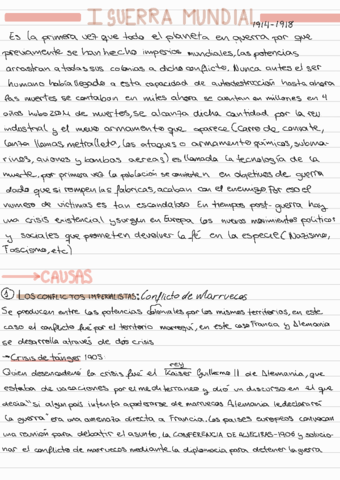 I GUERRA MUNDIAL 1914-1918
Es la primera vez que todo el planeta en guerra por que
previamente se han hecho imperios mundiales, las potencias
arrastran a todas sus colonias a dicho conflicto. Nunca antes el ser
humano había llegado a esta capacidad de autodestrucción hasta ahora
las muertes se contaban en miles ahora se cuentan en millones en 4
años hubo 20M de muertes, se alcanza dicha cantidad por la rev
industrial y el nuevo armamento que aparece (Carro de combate,
lanza llamas metralleta, los ataques o armamento químicos, submari-
nos, aviones y bombas aereas) es llamada la tecnología de la
muerte, por primera vez la población se convierte en objetivos de guerra
dado que si rompen las fabricas, acaban con el enemigo. Por eso el
numero de victimas es tan escandaloso. En tiempos post-guerra hay
una crisis existencial y surgen en Europa los nuevos movimientos políticos
y sociales que prometen devolver la fé en la especie (Nazismo,
Fascismo, etc)
→CAUSAS
1 LOS CONFLICTOS IMPERIALISTAS: Conflicto de Marruecos
Se producen entre las potencias coloniales por los mismos territorios, en este
caso el conflicto fué por el territorio marroquí, en este caso Francia y Alemania
se desarrolla através de dos crisis
→Crisis de tánger 1905:
rey
Quien desencadenó la crisis fué el Kaiser Guillermo II de Alemania, que
estaba de vacaciones por el mediterraneo y dió un discurso en el que
decía "si algun país intenta apoderarse de marruecos Alemania le declarará
la guerra" era una amenaza directa a Francia. Los países europeos convocan
una reunión para debatir el asunto, la CONFERENCIA DE ALGECIRAS-1906 y solucio-
nar el conflicto de marruecos mediante la diplomacia para detener la guerra